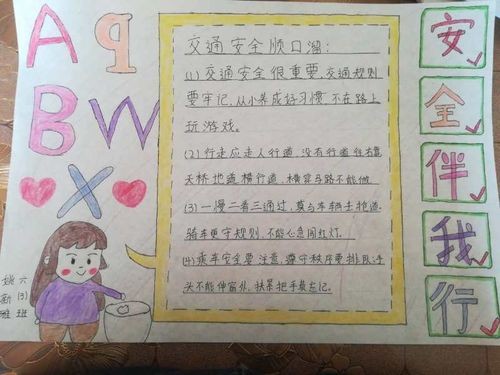 A q
B W
X
交通安全顺口溜:
(1)交通安全很重要,交通规则
要牢记,从小养成好习惯,不在路上
玩游戏。
(2)行走应走人行道,没有行道往右靠
天桥地道横行道,横穿马路不能做
(3)一慢二看三通过,莫与车辆去抢道.
骑车更守规则,不能心急闯红灯.
(4)乘车安全要注意,遵守秩序要排队手
头不能伸窗外,扶紧把手莫忘记.
安
全
伴
我
行
姚
新
雅
六
(3)
班